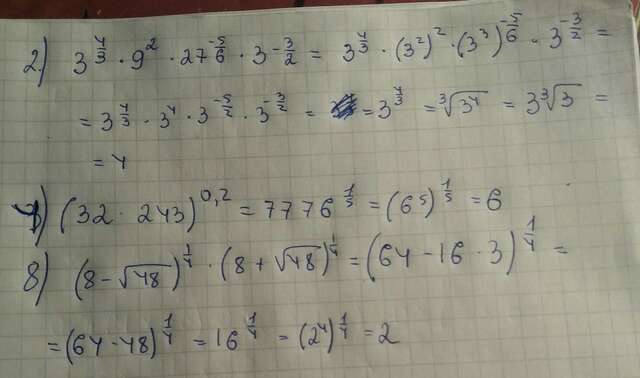 2) 3^(4/3) · 9^2 · 27^(-5/6) · 3^(-3/2) = 3^(4/3) · (3^2)^2 · (3^3)^(-5/6) · 3^(-3/2) =
= 3^(4/3) · 3^4 · 3^(-5/2) · 3^(-3/2) = = 3^(4/3) = ∛(3^4) = 3∛3 =
= 4
4) (32 · 243)^(0,2) = 7776^(1/5) = (6^5)^(1/5) = 6
8) (8 - √48)^(1/4) · (8 + √48)^(1/4) = (64 - 16 · 3)^(1/4) =
= (64 - 48)^(1/4) = 16^(1/4) = (2^4)^(1/4) = 2